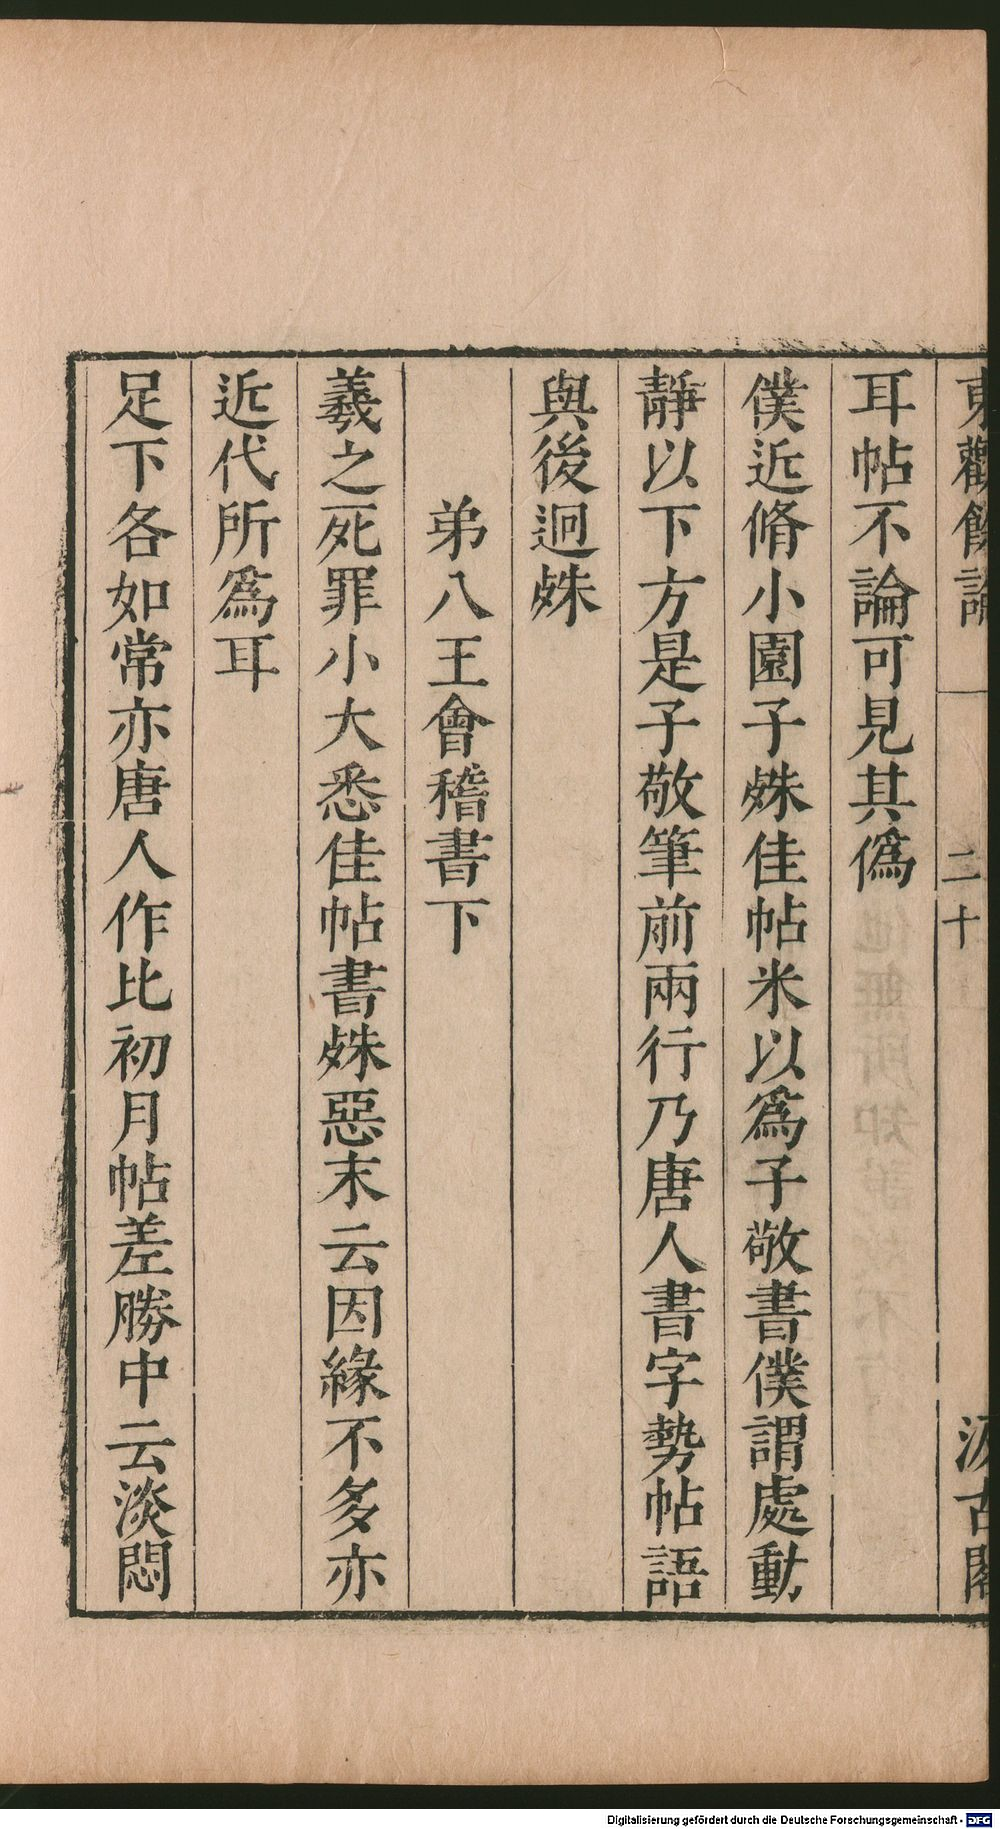 東觀餘論
二十
汲古閣
耳帖不論可見其僞
僕近脩小園子𣨼佳帖米以爲子敬書僕謂處動
靜以下方是子敬筆前兩行乃唐人書字勢帖語
與後迥𣨼
弟八王會稽書下
羲之死罪小大悉佳帖書𣨼惡末云因緣不多亦
近代所爲耳
足下各如常亦唐人作比初月帖差勝中云淡悶
Digitalisierung gefördert durch die Deutsche Forschungsgemeinschaft - DFG